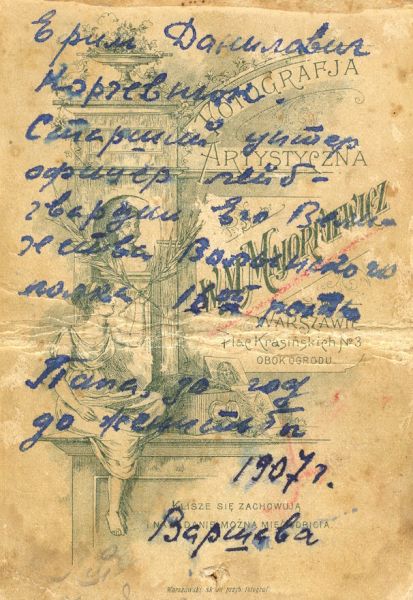 Ефим Данилович
FOTOGRAFJA
Старший унтер
ARTYSTYCZNA
офицер лейб-
гвардии Его Вели-
W. MAJORKIEWICZ
чества Волынского
полка 16ой роты
WARSZAWIE
Plac Krasińskich № 3
OBOK OGRODU.
Папа, за год
до женитьбы
1907 г.
KLISZE SIĘ ZACHOWUJĄ
I NA ŻĄDANIE MOŻNA MIEĆ ODBICIA
Варшава
Warszawski skład przyb. fotograf.